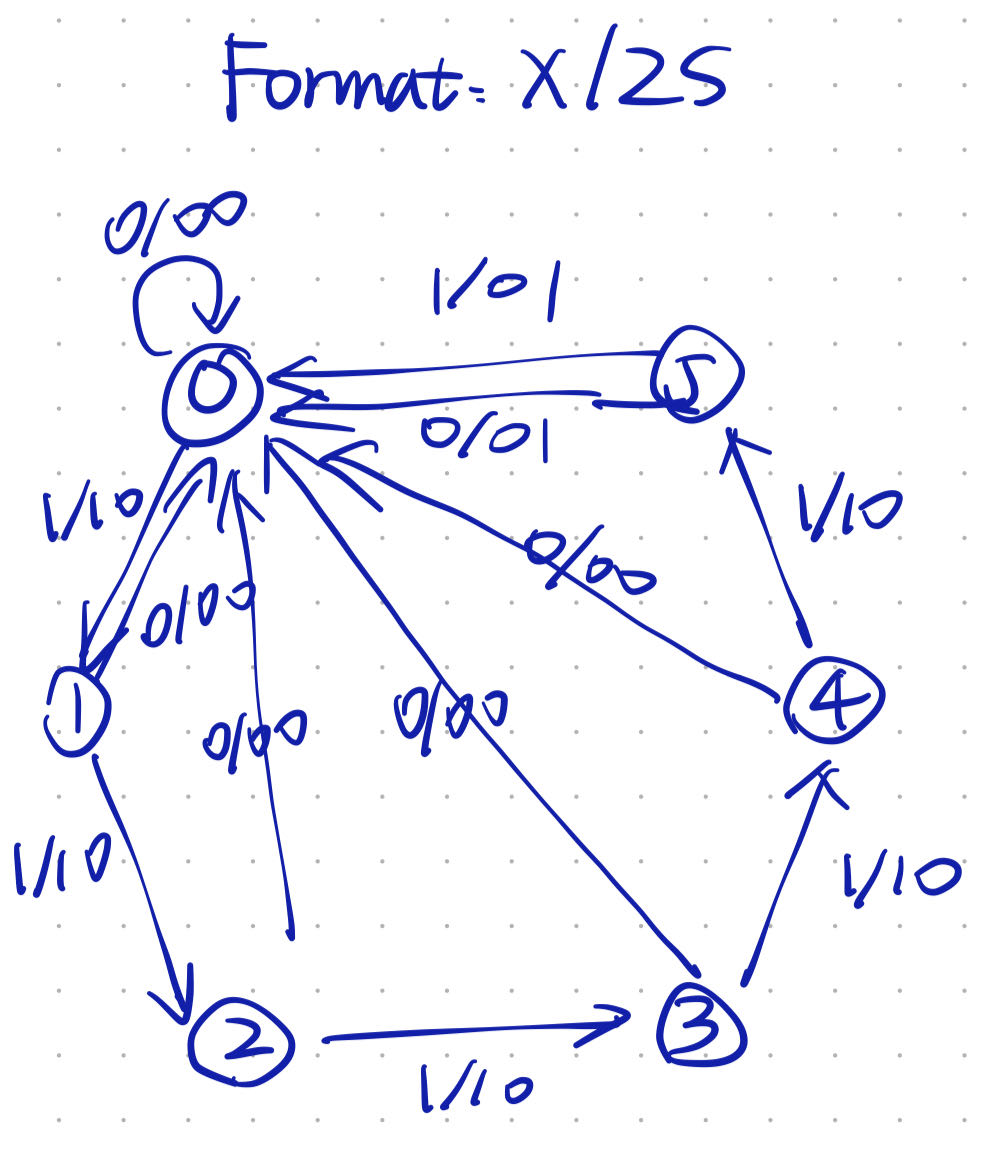 Format: X/ZS
0/00
1/01
0
5
0/01
1/10
1/10
0/00
0/00
1
0/00
0/00
4
1/10
1/10
2
3
1/10